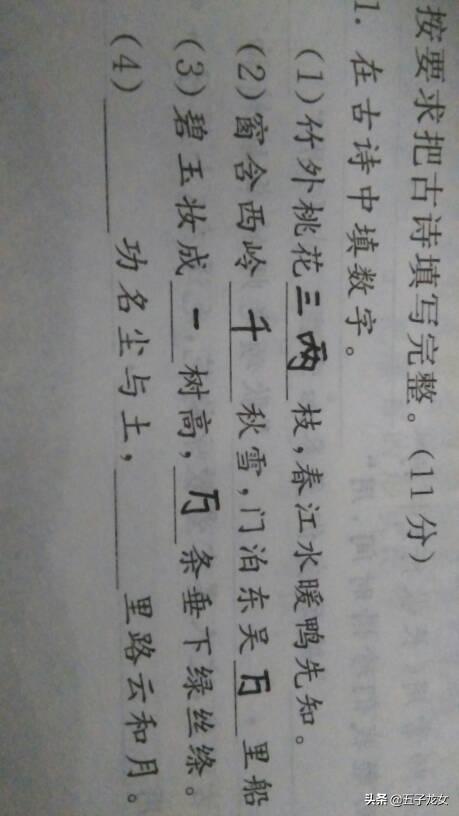 按要求把古诗填写完整。(11分)
1. 在古诗中填数字。
(1)竹外桃花三两枝,春江水暖鸭先知。
(2)窗含西岭千秋雪,门泊东吴万里船
(3)碧玉妆成一树高,万条垂下绿丝绦。
(4)______功名尘与土,______里路云和月。
头条 @五子龙女